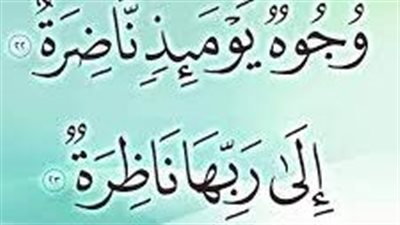 وُجُوهٌ يَوْمَئِذٍ نَّاضِرَةٌ ٢٢
إِلَىٰ رَبِّهَا نَاظِرَةٌ ٢٣